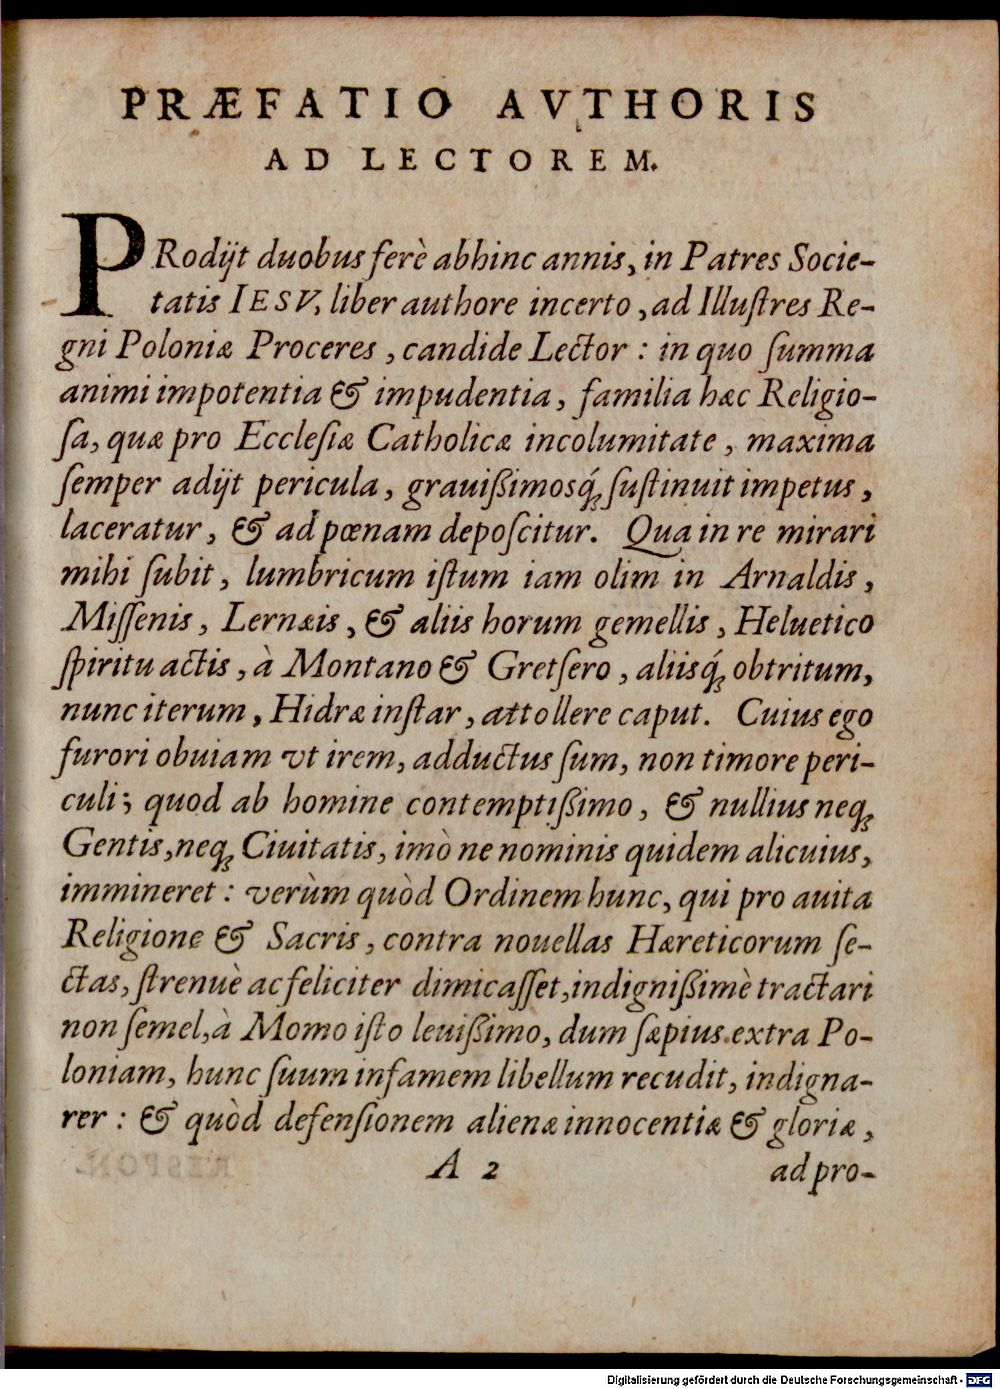 PRÆFATIO AVTHORIS
AD LECTOREM.
PRodijt duobus ferè abhinc annis, in Patres Socie-
tatis IESV, liber authore incerto, ad Illuſtres Re-
gni Poloniæ Proceres, candide Lector: in quo ſumma
animi impotentia & impudentia, familia hæc Religio-
ſa, quæ pro Eccleſiæ Catholicæ incolumitate, maxima
ſemper adijt pericula, grauißimosq́; ſuſtinuit impetus,
laceratur, & ad pœnam depoſcitur. Qua in re mirari
mihi ſubit, lumbricum iſtum iam olim in Arnaldis,
Miſſenis, Lernæis, & aliis horum gemellis, Heluetico
ſpiritu actis, à Montano & Gretſero, aliisq́; obtritum,
nunc iterum, Hidræ inſtar, attollere caput. Cuius ego
furori obuiam vt irem, adductus ſum, non timore peri-
culi; quod ab homine contemptißimo, & nullius neq;
Gentis, neq; Ciuitatis, imò ne nominis quidem alicuius,
immineret: verùm quòd Ordinem hunc, qui pro auita
Religione & Sacris, contra nouellas Hæreticorum ſe-
ctas, ſtrenuè ac feliciter dimicaſſet, indignißimè tractari
non ſemel, à Momo iſto leuißimo, dum ſæpius extra Po-
loniam, hunc ſuum infamem libellum recudit, indigna-
rer: & quòd defenſionem alienæ innocentiæ & gloriæ,
A 2 ad pro-
Digitalisierung gefördert durch die Deutsche Forschungsgemeinschaft - DFG